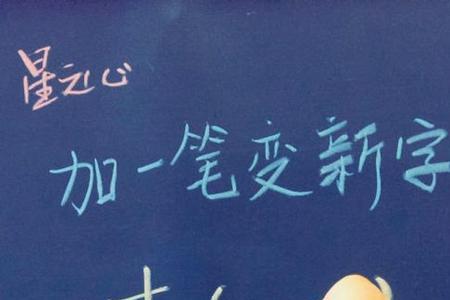 星之心
加一笔变新字